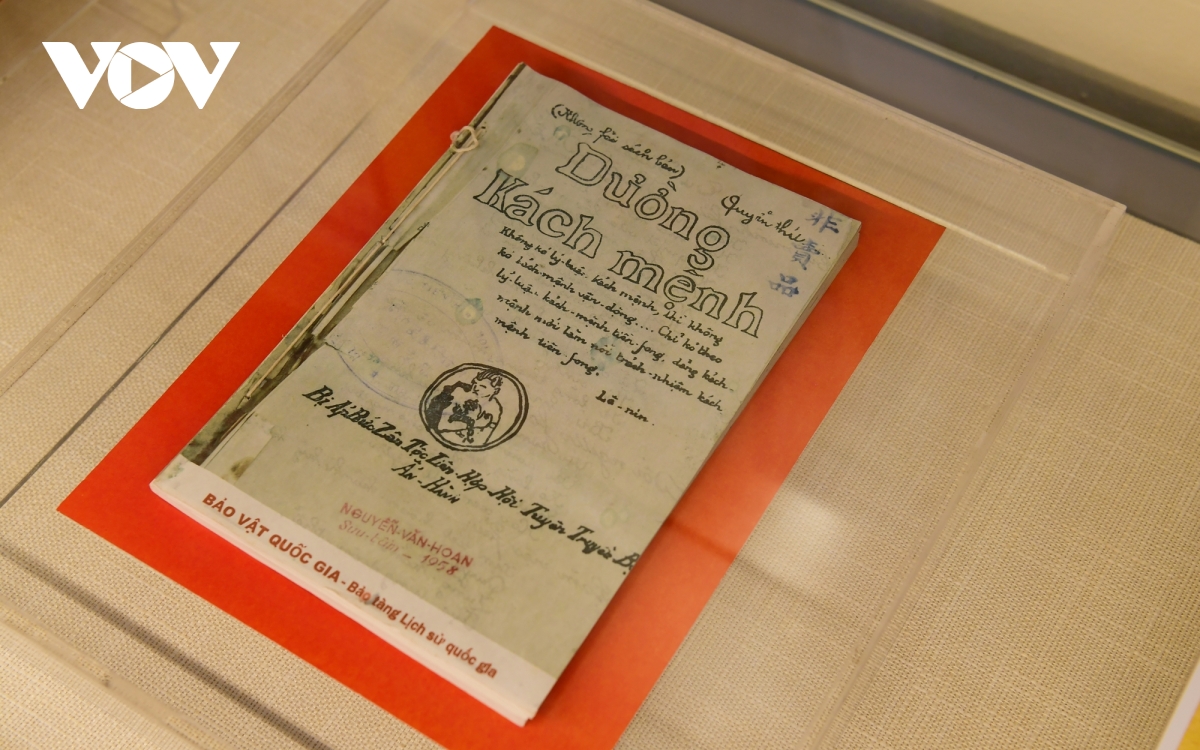 VOV
(Không fải sách bán)
Đường
Kách mệnh
Quyển thứ
非
賣
品
Không kó lý-luận kách mệnh, thì không
kó kách mệnh vận-động.... Chỉ kó theo
lý-luận kách-mệnh tiền-fong, đảng kách-
mệnh mới làm nổi trách-nhiệm kách
mệnh tiền-fong.
Lê-nin.
Bị Áp Bức Zân Tộc Liên Hợp Hội Tuyên Truyền Bộ
Ấn-Hành
NGUYỄN-VĂN-HOAN
Sưu-tầm - 1958
BẢO VẬT QUỐC GIA - Bảo tàng Lịch sử quốc gia